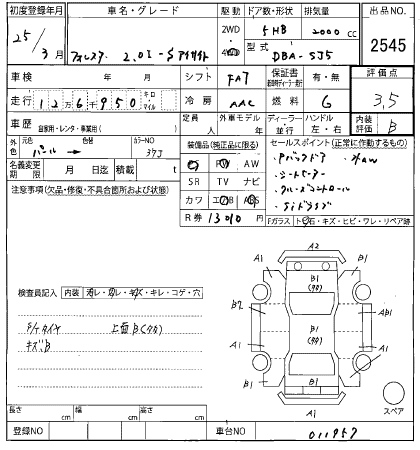 初度登録年月
車名・グレード
駆動
ドア数・形状
排気量
出品NO.
25/3月
フォレスター 2.0i-Sアイサイト
2WD
4WD
5 HB
2000 cc
2545
型式
DBA-SJ5
車検
年 月
シフト
FAT
保証書
有・無
評価点
走行
12万6千950
キロ
マイル
冷房
AAC
燃料
G
3.5
車歴
自家用・レンタ・事業用( )
定員
外車モデル
年
ディーラー
並行
ハンドル
左・右
内装評価
B
外色
元色
パール
色替
カラーNO
37J
装備品(純正品に限る)
セールスポイント(正常に作動するもの)
名義変更期限
月 日迄
積載
t
PS PW AW
SR TV ナビ
カワ エアB ABS
R券 13010 円
・Pバックドア
・シートヒーター
・クルーズコントロール
・SiドラSZ
注意事項(欠品・修復・不具合箇所および状態)
Fガラス
トビ石・キズ・ヒビ・ワレ・リペア跡
検査員記入
内装
汚レ・スレ・キズ・キレ・コゲ・穴
キズB
上面B(クカ)
A2
A1
B1
B1
(クカ)
B2
B1
(クカ)
AB1
A1
A1
A1
B1
B1
A1
スペア
長さ cm
幅 cm
高さ cm
登録NO
車台NO
011957